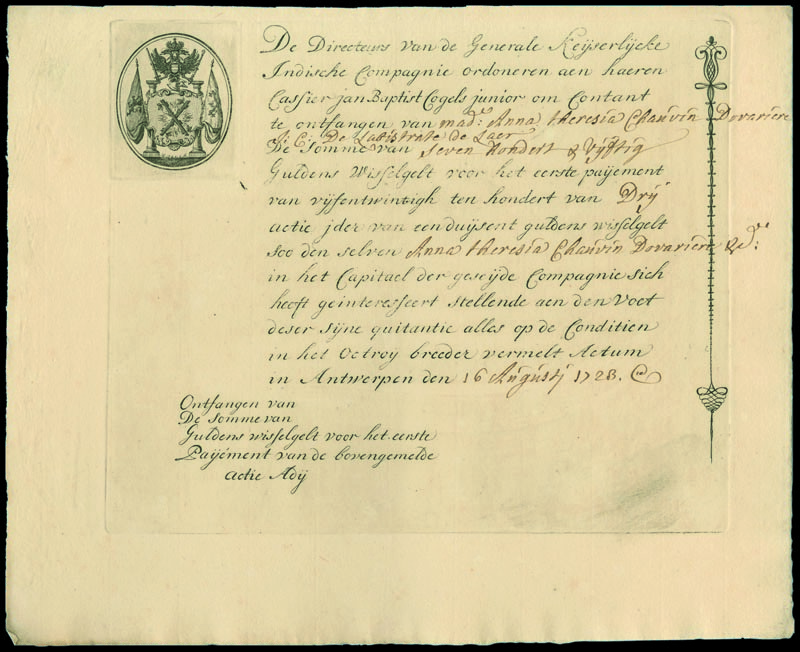 De Directeurs van de Generale Keijserlijcke
Indische Compagnie ordoneren aen haeren
Cassier jan Baptist Cogels junior om Contant
te ontfangen van mad: Anna Theresia Chauvin Dovariere
J: C: De Labistrate de Laer
De Somme van seven hondert & vijftig
Guldens Wisselgelt voor het eerste paijement
van vijfentwintigh ten hondert van Drij
actie jder van een duijsent guldens wisselgelt
soo den selven Anna Theresia Chauvin Dovariere &a:
in het Capitael der geseijde Compagnie sich
heeft geinteresseert stellende aen den Voet
deser sijne quitantie alles op de Conditien
in het Octroij breeder vermelt Actum
in Antwerpen den 16 Augustij 1723.
Ontfangen van
De Somme van
Guldens wisselgelt voor het eerste
Paijement van de bovengemelde
actie Adij